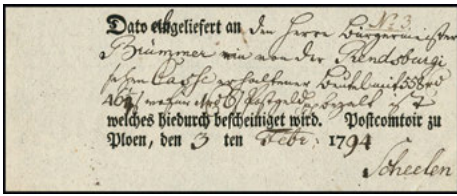 No 3.
Dato eingeliefert an den Herrn Bürgermeister
Brümmer ein von der Rendsburgi
schen Casse erhaltener Beutel mit 558 rd
welches hiedurch bescheiniget wird. Postcomtoir zu
Ploen, den 3 ten Febr: 1794
Scheelen